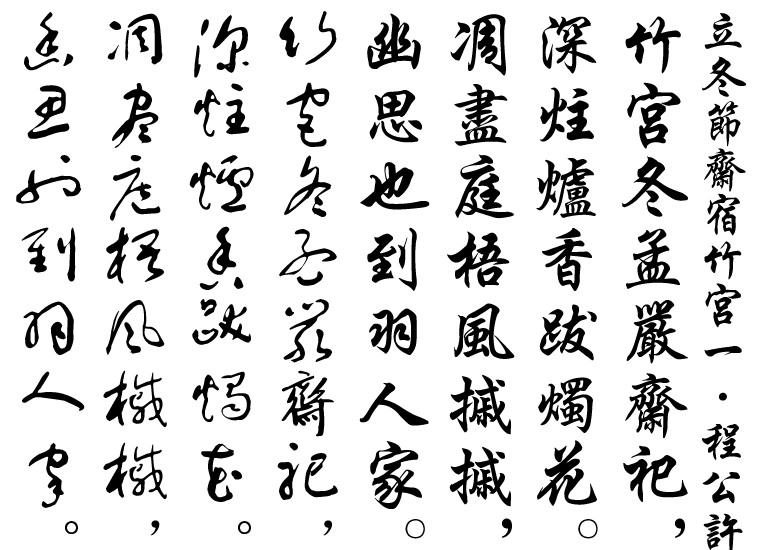 立冬節齋宿竹宮一・程公許
竹宮冬孟嚴齋祀，
深炷爐香跋燭花。
凋盡庭梧風摵摵，
幽思也到羽人家。
竹宮冬孟嚴齋祀，
深炷爐香跋燭花。
凋盡庭梧風槭槭，
幽思也到羽人家。